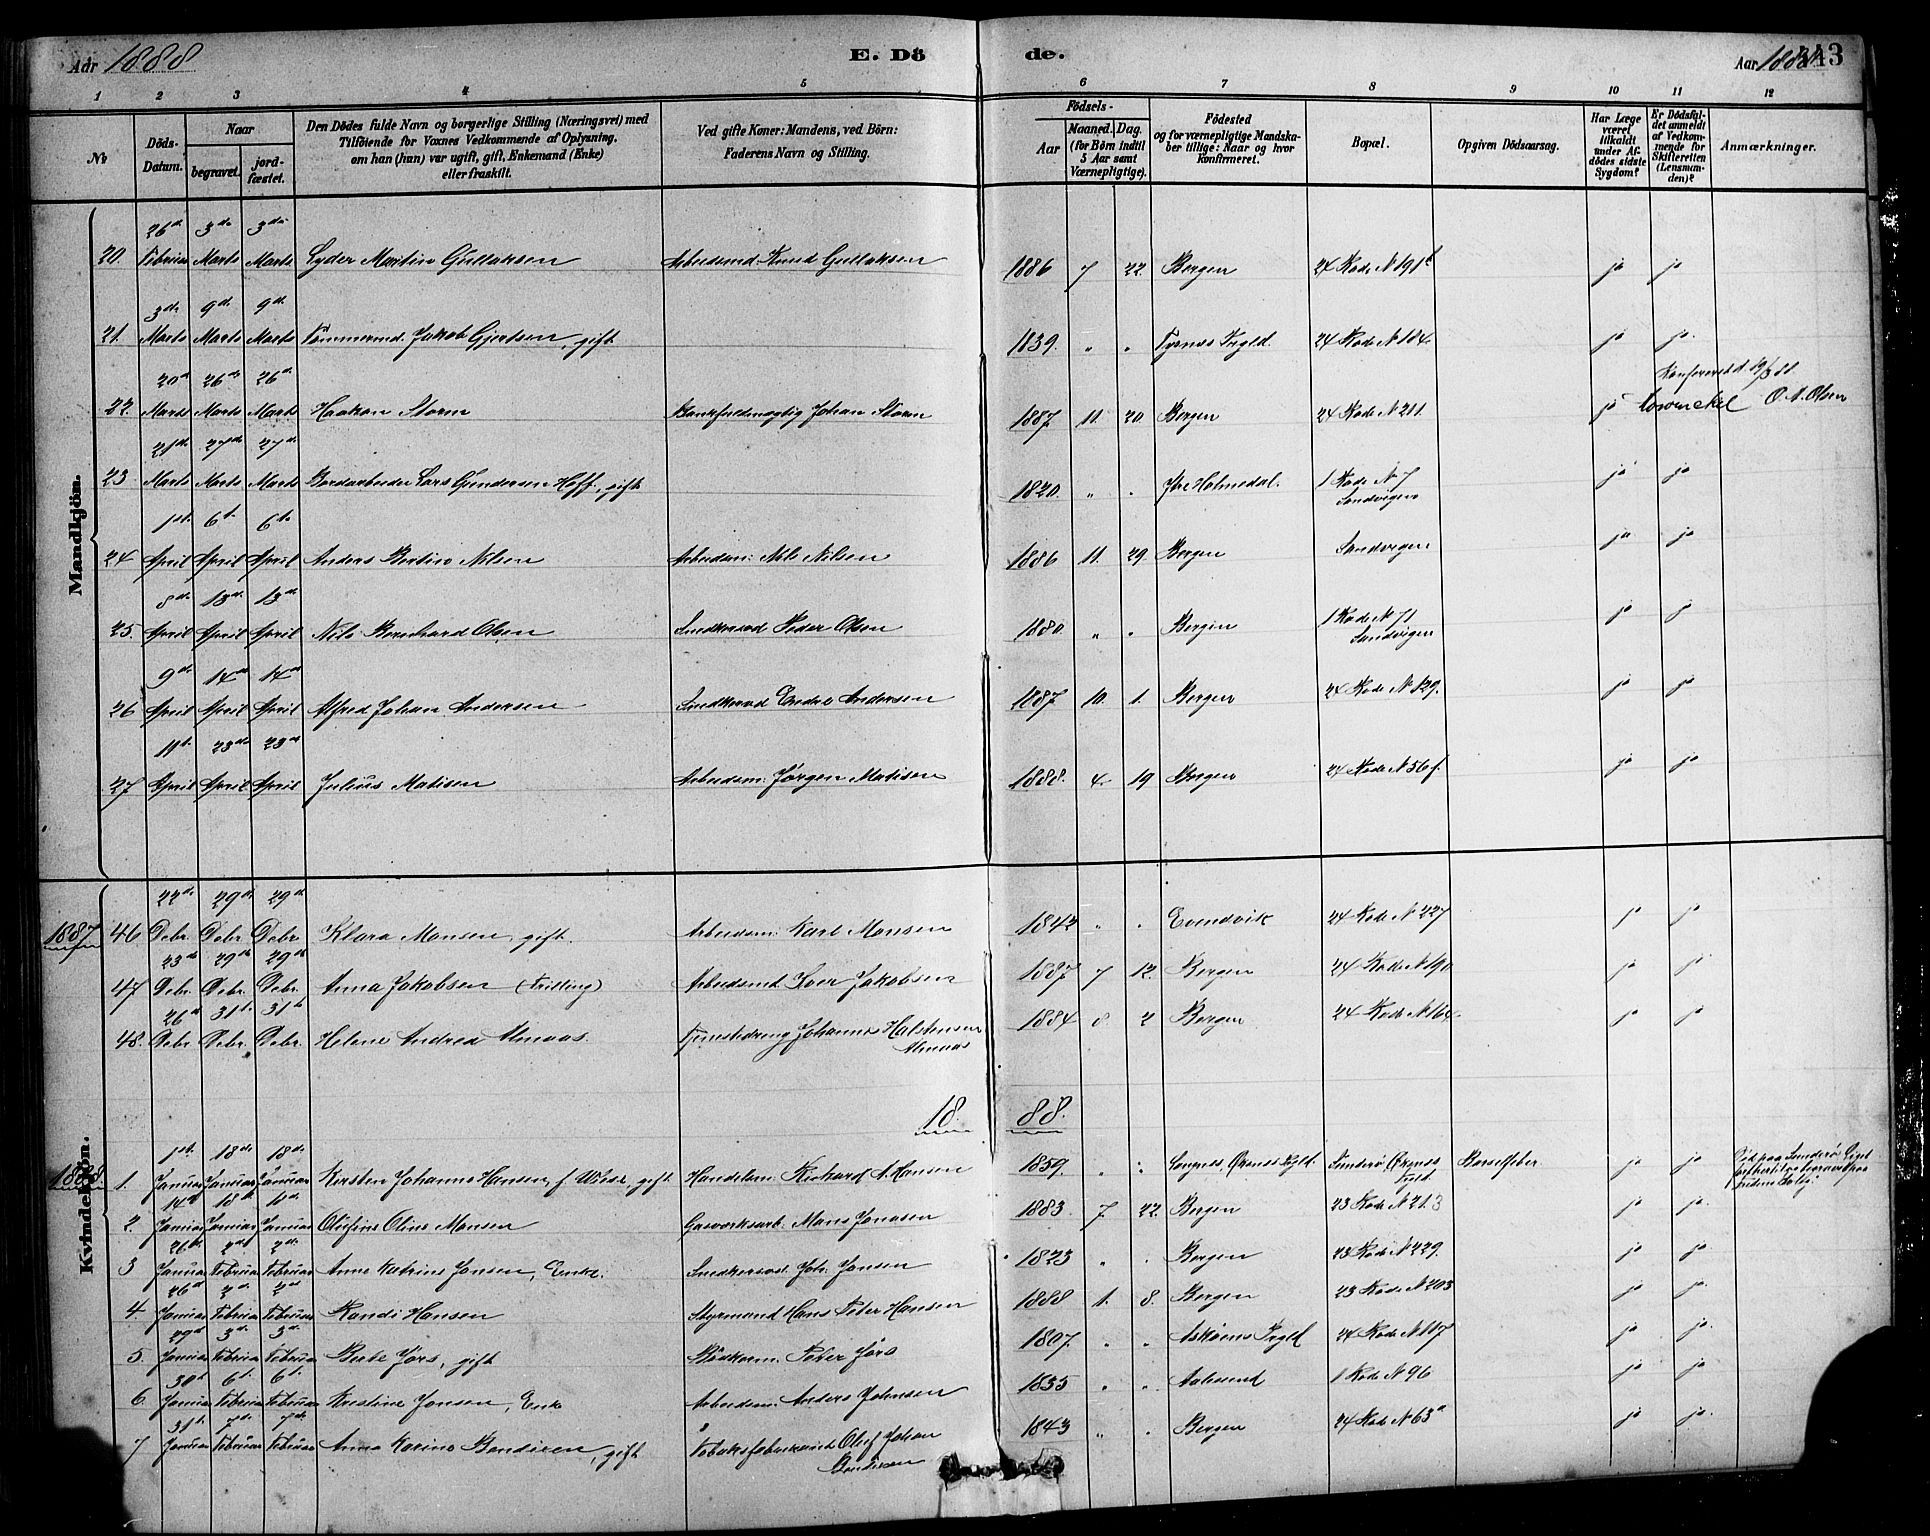 Aar 1888 E. Döde. Aar 1888 113
1 2 3 4 5 6 7 8 9 10 11 12
No
Döds-Datum.
Naar begravet. jordfæstet.
Den Dödes fulde Navn og borgerlige Stilling (Næringsvei) med Tilföiende for Voxnes Vedkommende af Oplysning, om han (hun) var ugift, gift, Enkemand (Enke) eller fraskilt.
Ved gifte Koner: Mandens, ved Börn: Faderens Navn og Stilling.
Födsels- Aar Maaned. Dag. (for Börn indtil 5 Aar samt Værnepligtige).
Födested og for værnepligtige Mandskaber tillige: Naar og hvor Konfirmeret.
Bopæl.
Opgiven Dödsaarsag.
Har Læge været tilkaldt under Afdödes sidste Sygdom?
Er Dödsfaldet anmeldt af Vedkommende for Skifteretten (Lensmanden)?
Anmærkninger.
Mandkjön.
20. 26de Februar 3die Marts 3die Marts Lyder Martin Gullaksen Arbeidsmd. Knud Gullaksen 1886 7 22. Bergen 24 Rode N 191 ja ja
21. 3die Marts 9de Marts 9de Marts Tömmermd. Jakob Gjertsen, gift 1839. " " Tysnes Prgld. 24 Rode N 184. ja ja.
Konfereret d 19/3 88
22. 20de Marts 26de Marts 26de Marts Haakon Storm Bankfuldmægtig Johan Storm 1887 11. 20. Bergen 24 Rode N 211. ja O. A. Olsen
23 21de Marts 27de Marts 27de Marts Lars Gundersen Hoff, gift 1820. " " Ytre Holmedal. 1 Rode N 7 Sandvigen ja ja
24 1ste April 6te April 6te April Anders Bertin Nilsen Arbeidsm: Nils Nilsen 1886 11. 29. Bergen Sandvigen ja ja
25. 8de April 13de April 13de April Nils Bernhard Olsen Snedkersvd Peder Olsen 1880. " " Bergen 1 Rode N 71 Sandvigen ja ja
26 9de April 14de April 14de April Alfred Johan Andersen Snedkersvd Endre Andersen 1887 10. 1. Bergen 24 Rode N 129. ja ja
27 19de April 23de April 23de April Julius Madsen Arbeidsm: Jørgen Madsen 1888. 4. 19 Bergen 24 Rode N 56f. ja ja
Kvindekjön.
1887 46 22de Debr. 29de Debr. 29de Debr. Klara Monsen, gift. Arbeidsm: Karl Monsen 1842 " " Evendvik 24 Rode N 227 ja ja
47 23de Debr. 29de Debr. 29de Debr. Anna Jakobsen (Trilling) Arbeidsmd Iver Jakobsen 1887 7 12. Bergen 24 Rode N 190 ja ja
48. 26de Debr. 31te Debr. 31te Debr. Helene Andrea Almaas. Tjenestedreng Johannes Halstensen Almaas 1884 8. 2 Bergen 24 Rode N 164. ja ja
18 88.
1888. 1. 1ste Januar 18de Januar 18de Januar Kirsten Johanne Hansen, f. gift Handelsm: Rickard A. Hansen 1859. " " Barselfeber. ja ja
2. 14de Januar 18de Januar Januar Olufine Oline Monsen Gasværksarb. Mons Jonasen 1883 7. 22. Bergen 23 Rode N 213 ja ja
3 26de Januar 2de Februar 2de Februar Anne Katrine Jonsen, Enke. Snedkersvd. Joh. Jonsen 1823 " " Bergen 23 Rode N 229. ja ja.
4. 26de Januar 2de Februar 2de Februar Randi Hansen Styrmand Hans Peter Hansen 1888 1. 8. Bergen 23 Rode N 203 ja ja.
5. 29de Januar 3die Februar 3die Februar Berte Jørs, gift Bødkerm. Peter Jørs 1807. " " Askøens Prgld 24 Rode N 117 ja ja.
6. 30te Januar 6te Februar 6te Februar Kristine Jonsen, Enke Arbeidsm: Anders Johnsen 1835 " " Aalesund 1 Rode N 96 ja ja.
7 31te Januar 7de Februar 7de Februar Anna Karine Bendixen, gift Tobaksfabrikant Oluf Johan Bendixen 1843 " " Bergen 24 Rode N 63a ja ja.